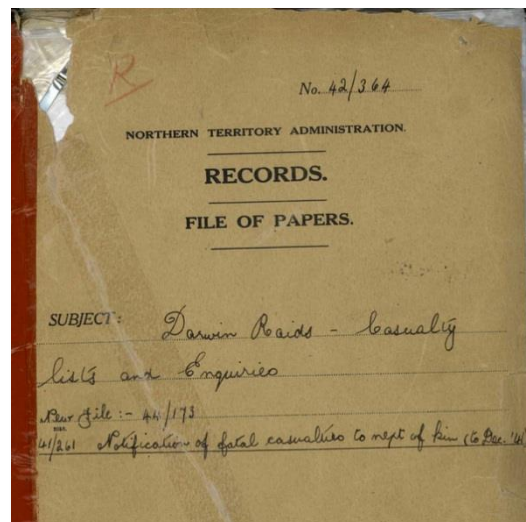 R
No. 42/364
NORTHERN TERRITORY ADMINISTRATION.
RECORDS.
FILE OF PAPERS.
SUBJECT: Darwin Raids - Casualty
lists and Enquiries
New File :- 44/173
41/261 Notification of fatal casualties to next of kin (to Dec. '41)